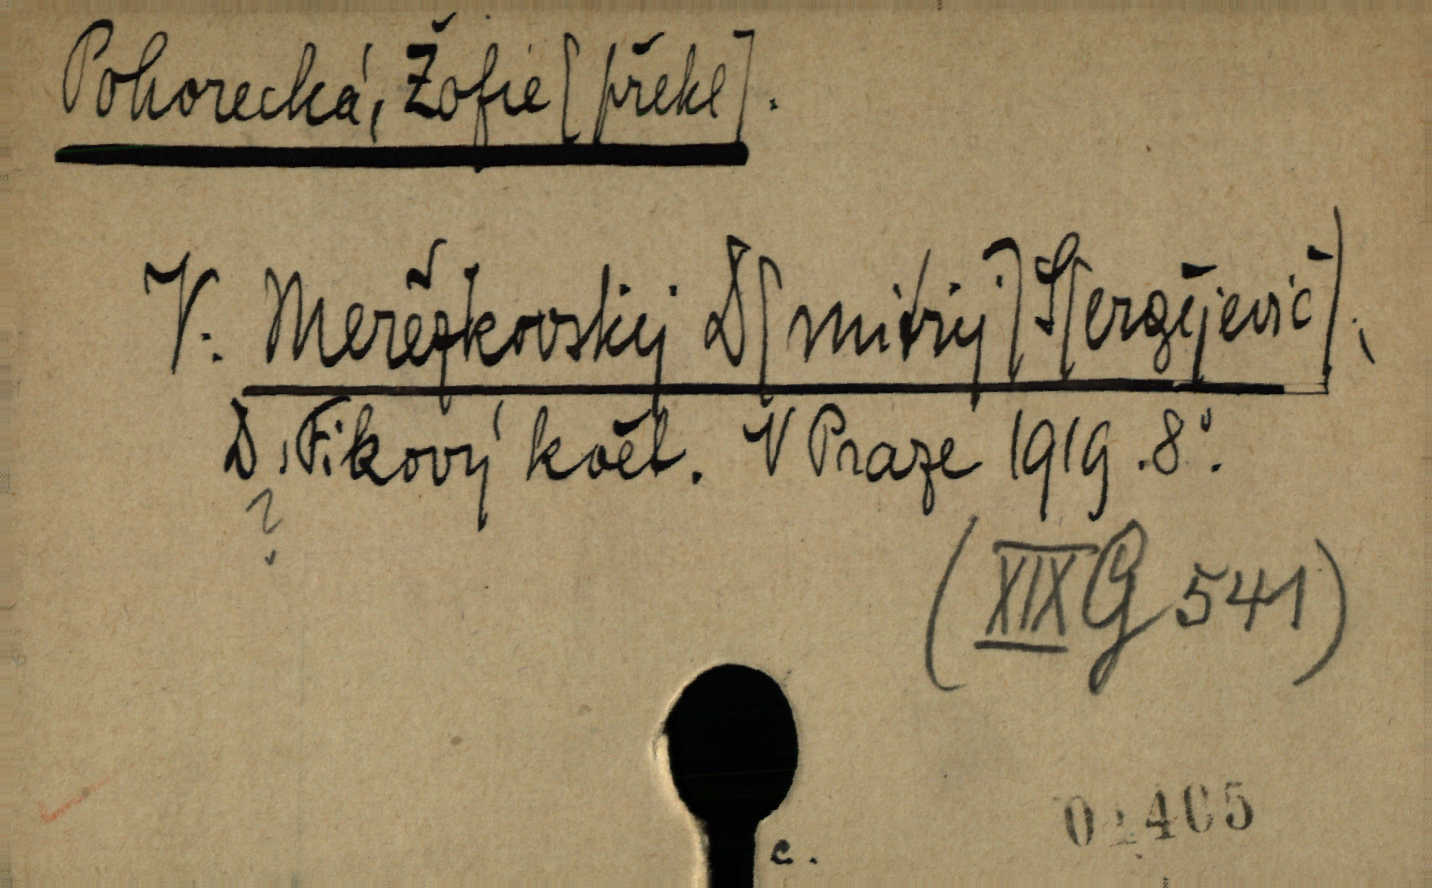 Pohorecká, Žofie [překl].
V. Merežkovskij D[mitrij] S[ergějevič].
D. Fíkový květ. V Praze 1919. 8°.
?
(XIX G 541)
c.